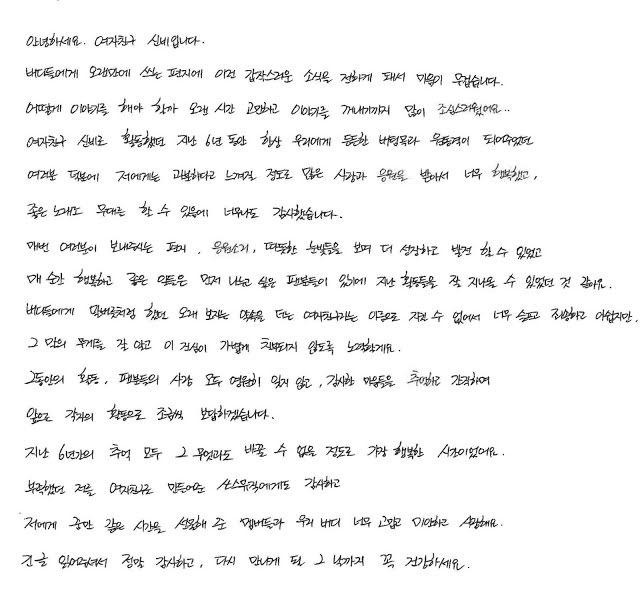 안녕하세요. 여자친구 신비입니다.
버디들에게 오랜만에 쓰는 편지에 이런 갑작스러운 소식을 전하게 돼서 마음이 무겁습니다.
어떻게 이야기를 해야 할까 오랜 시간 고민하고 이야기를 꺼내기까지 많이 조심스러웠어요..
여자친구 신비로 활동했던 지난 6년 동안 항상 우리에게 든든한 버팀목과 원동력이 되어주었던
여러분 덕분에 저에게는 과분하다고 느껴질 정도로 많은 사랑과 응원을 받아서 너무 행복했고,
좋은 노래와 무대를 할 수 있음에 너무나도 감사했습니다.
매번 여러분이 보내주시는 편지, 응원소리, 따뜻한 눈빛들을 보며 더 성장하고 발전 할 수 있었고
매 순간 행복하고 좋은 일들은 먼저 나누고 싶은 팬분들이 있기에 지난 활동들을 잘 지나올 수 있었던 것 같아요.
버디들에게 말버릇처럼 했던 오래 보자는 약속을 더는 여자친구라는 이름으로 지킬 수 없어서 너무 슬프고 죄송하고 아쉽지만,
그 말의 무게를 잘 알고 이 진심이 가볍게 치부되지 않도록 노력할게요.
그동안의 활동, 팬분들의 사랑 모두 영원히 잊지 않고, 감사한 마음들을 추억하고 간직하며
앞으로 각자의 활동으로 조금씩 보답하겠습니다.
지난 6년간의 추억 모두 그 무엇과도 바꿀 수 없을 정도로 가장 행복한 시간이었어요.
부족했던 저를 여자친구로 만들어준 쏘스뮤직에게도 감사하고
저에게 꿈만 같은 시간을 선물해 준 멤버들과 우리 버디 너무 고맙고 미안하고 사랑해요.
긴글 읽어주셔서 정말 감사하고, 다시 만나게 될 그 날까지 꼭 건강하세요.